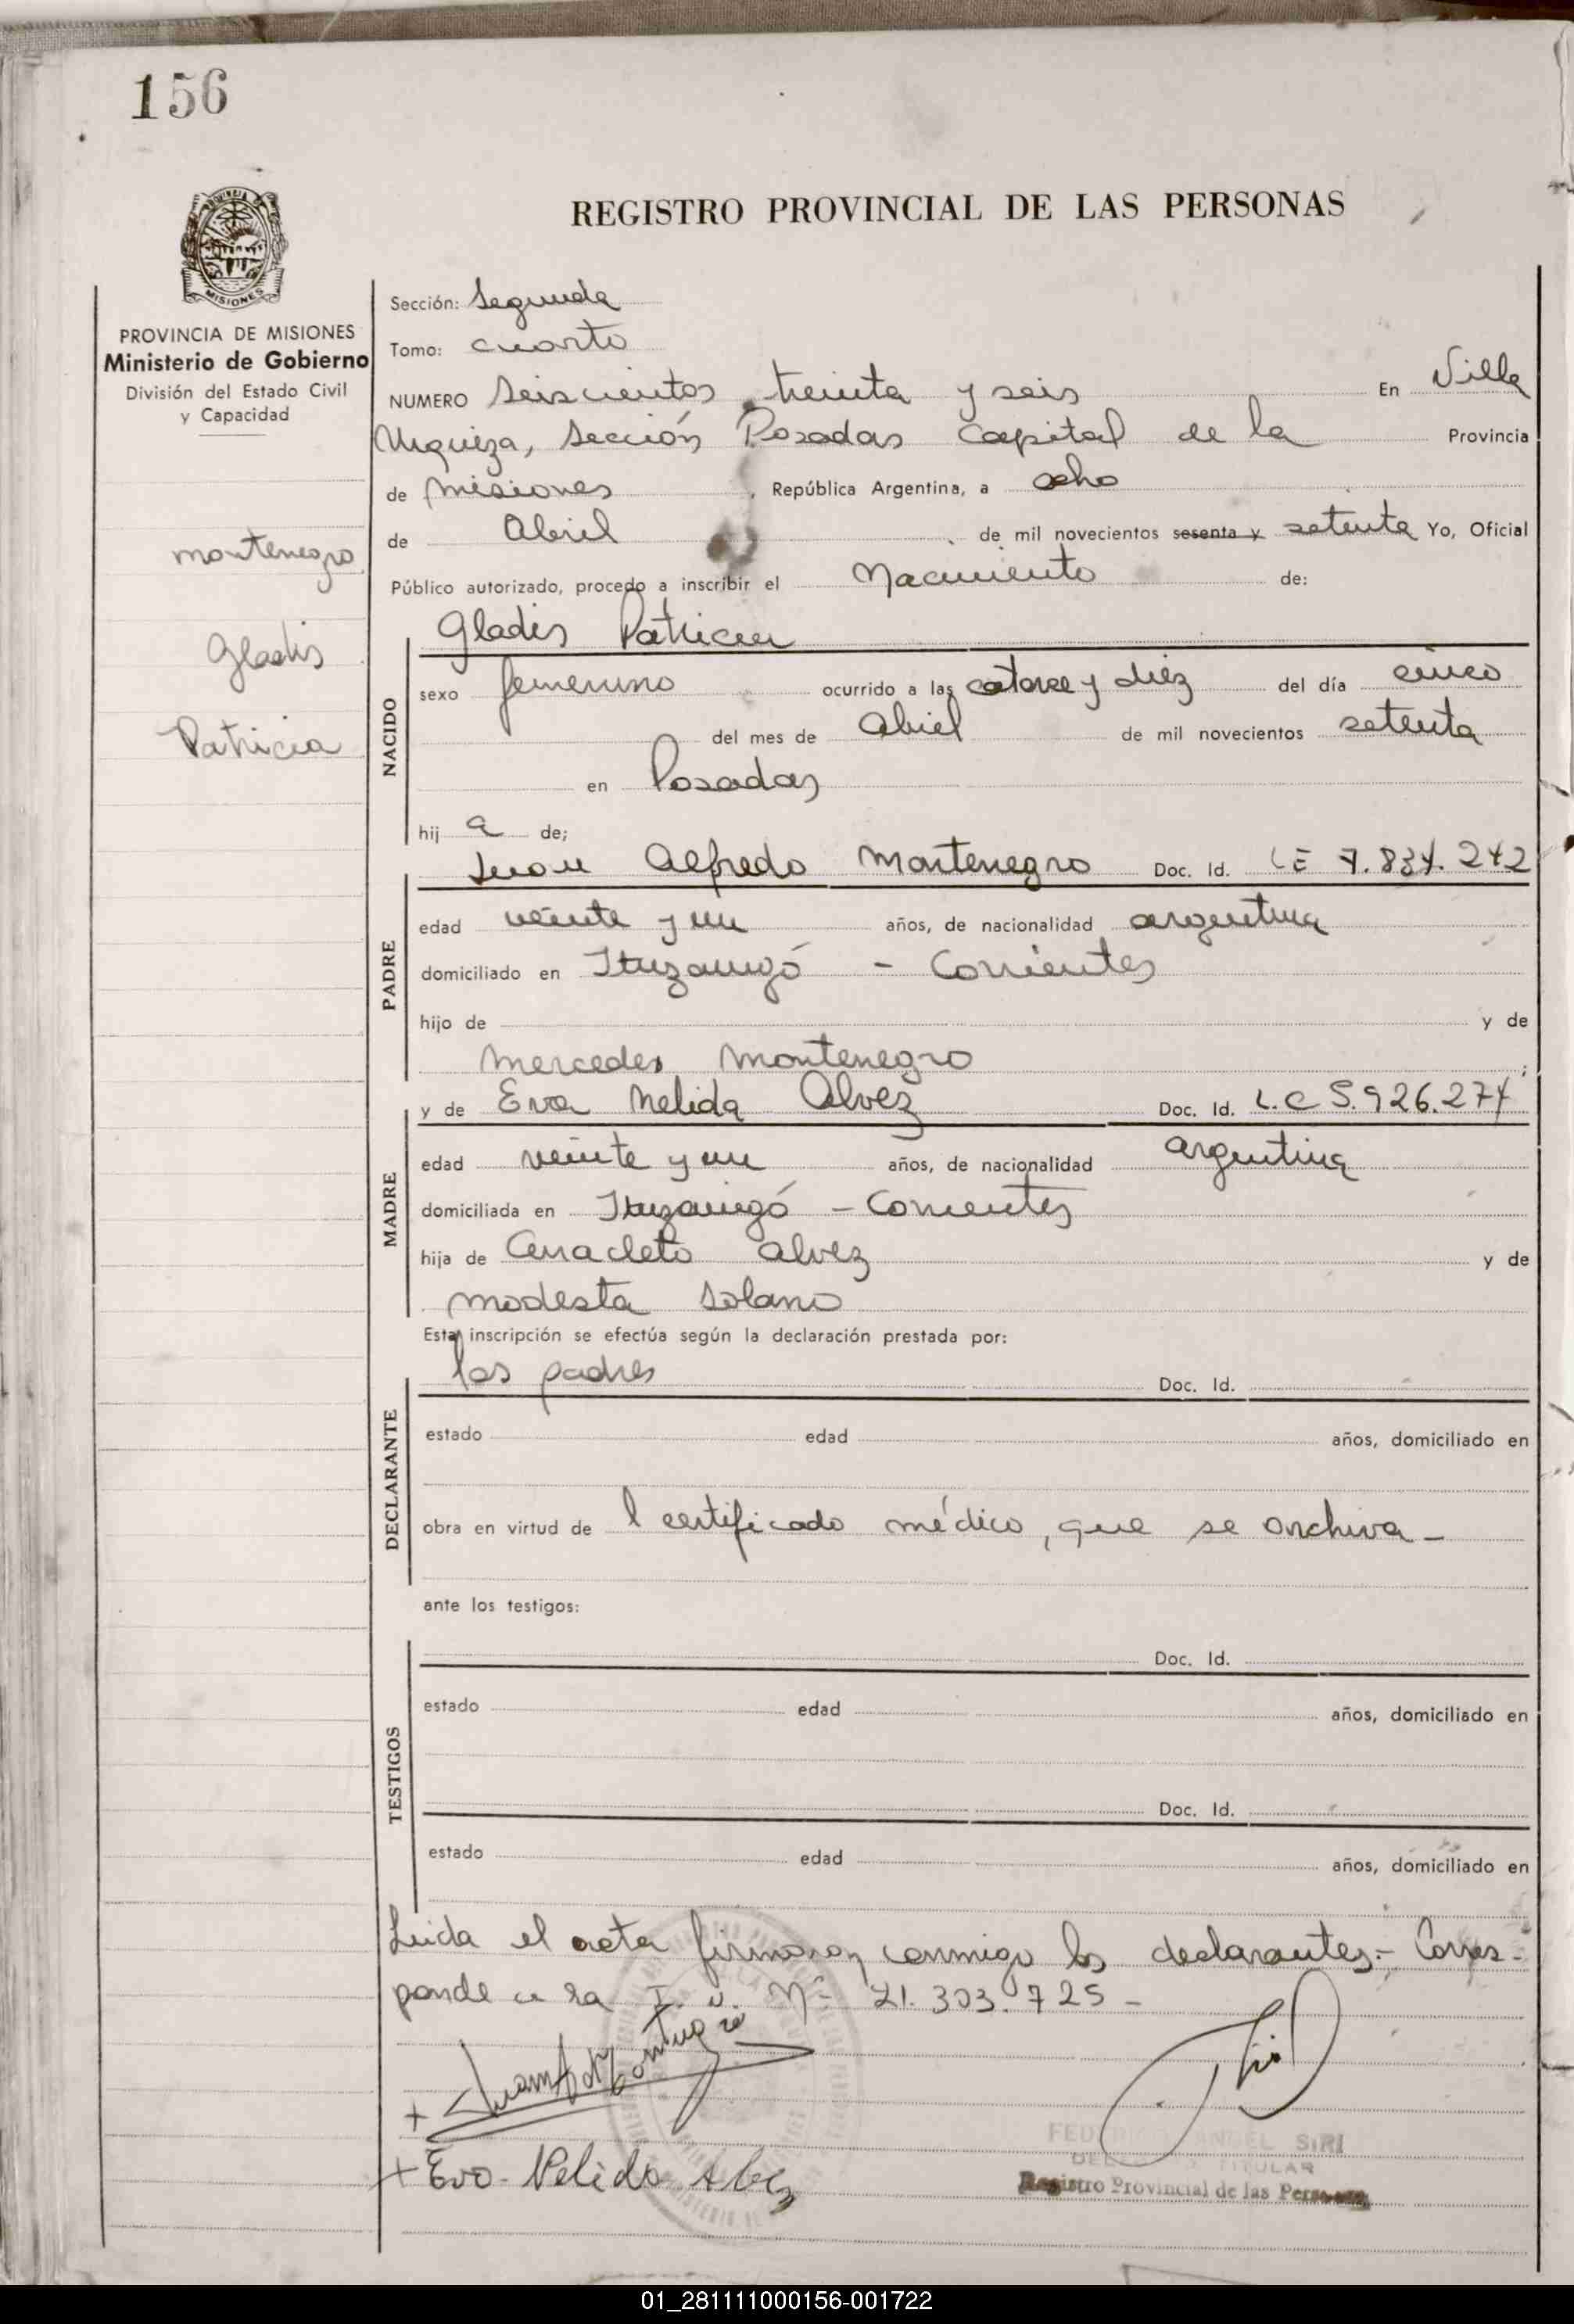 156
REGISTRO PROVINCIAL DE LAS PERSONAS
MISIONES
PROVINCIA DE MISIONES
Ministerio de Gobierno
División del Estado Civil
y Capacidad
montenegro
Gladis
Patricia
Sección: Segunda
Tomo: cuarto
NUMERO Seiscientos treinta y seis En Villa
Urquiza, Sección Posadas Capital de la Provincia
de misiones, República Argentina, a ocho
de Abril de mil novecientos sesenta y setenta Yo, Oficial
Público autorizado, procedo a inscribir el Nacimiento de:
NACIDO
Gladis Patricia
sexo femenino ocurrido a las catorce y diez del día cinco
del mes de Abril de mil novecientos setenta
en Posadas
hij a de;
PADRE
Juan Alfredo Montenegro Doc. Id. LE 7.834.242
edad veinte y un años, de nacionalidad argentina
domiciliado en Ituzaingó - Corrientes
hijo de y de
Mercedes Montenegro ;
MADRE
y de Eva Nelida Alvez Doc. Id. L.C 5.926.274
edad veinte y un años, de nacionalidad argentina
domiciliada en Ituzaingó - Corrientes
hija de Anacleto Alvez y de
modesta Solano
Esta inscripción se efectúa según la declaración prestada por:
DECLARANTE
los padres Doc. Id.
estado edad años, domiciliado en
obra en virtud de l certificado médico, que se archiva -
ante los testigos:
TESTIGOS
Doc. Id.
estado edad años, domiciliado en
Doc. Id.
estado edad años, domiciliado en
Leida el acta firmaron conmigo los declarantes.- Corres-
ponde a la I. U. Nº 21.303.725 -
+ Juan A. Montenegro
+ Eva Nelida Alvez
ANGEL SIRI
TITULAR
Registro Provincial de las Personas
01_281111000156-001722